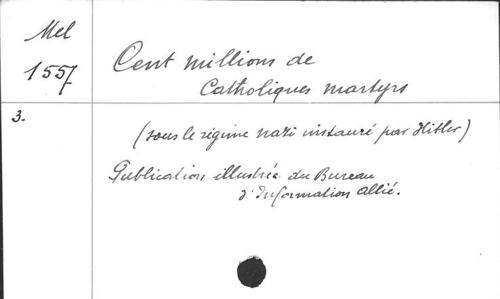 Mel
1557
Cent millions de
Catholiques martyrs
3.
(sous le régime nazi instauré par Hitler)
Publication illustrée du Bureau
d'Information Allié.